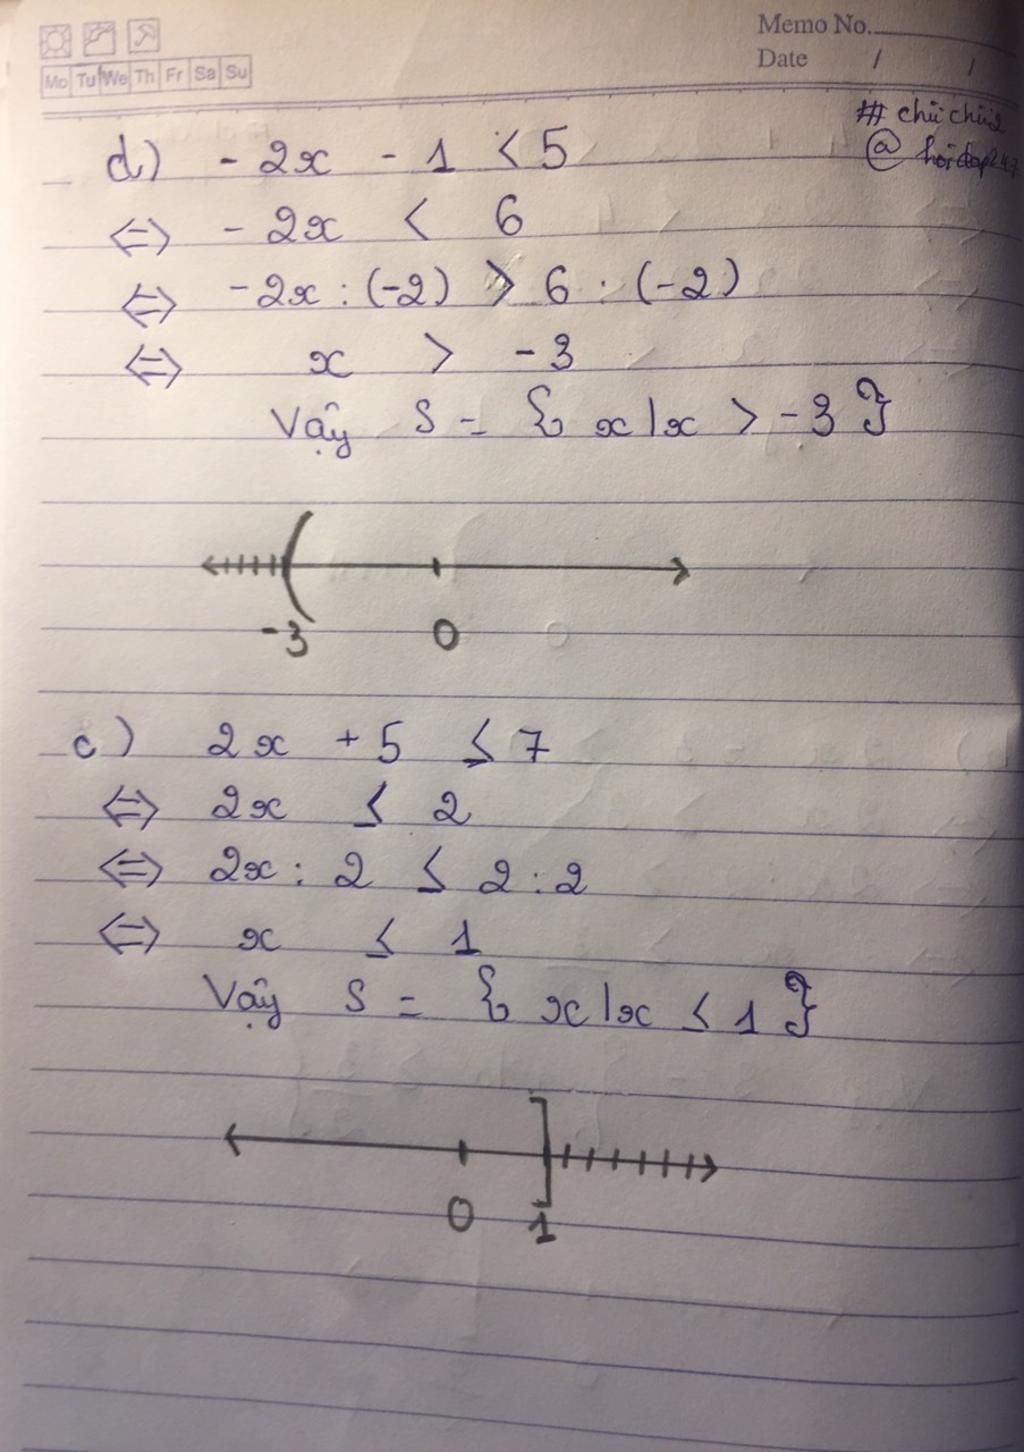 Memo No.
Mo Tu We Th Fr Sa Su
Date / /
# chũ chũ2
@ hoidap247
d) - 2x - 1 < 5
<=> - 2x < 6
<=> -2x : (-2) > 6 : (-2)
<=> x > -3
Vậy S = { x | x > -3 }
-3 0
c) 2x + 5 ≤ 7
<=> 2x ≤ 2
<=> 2x : 2 ≤ 2 : 2
<=> x ≤ 1
Vậy S = { x | x ≤ 1 }
0 1